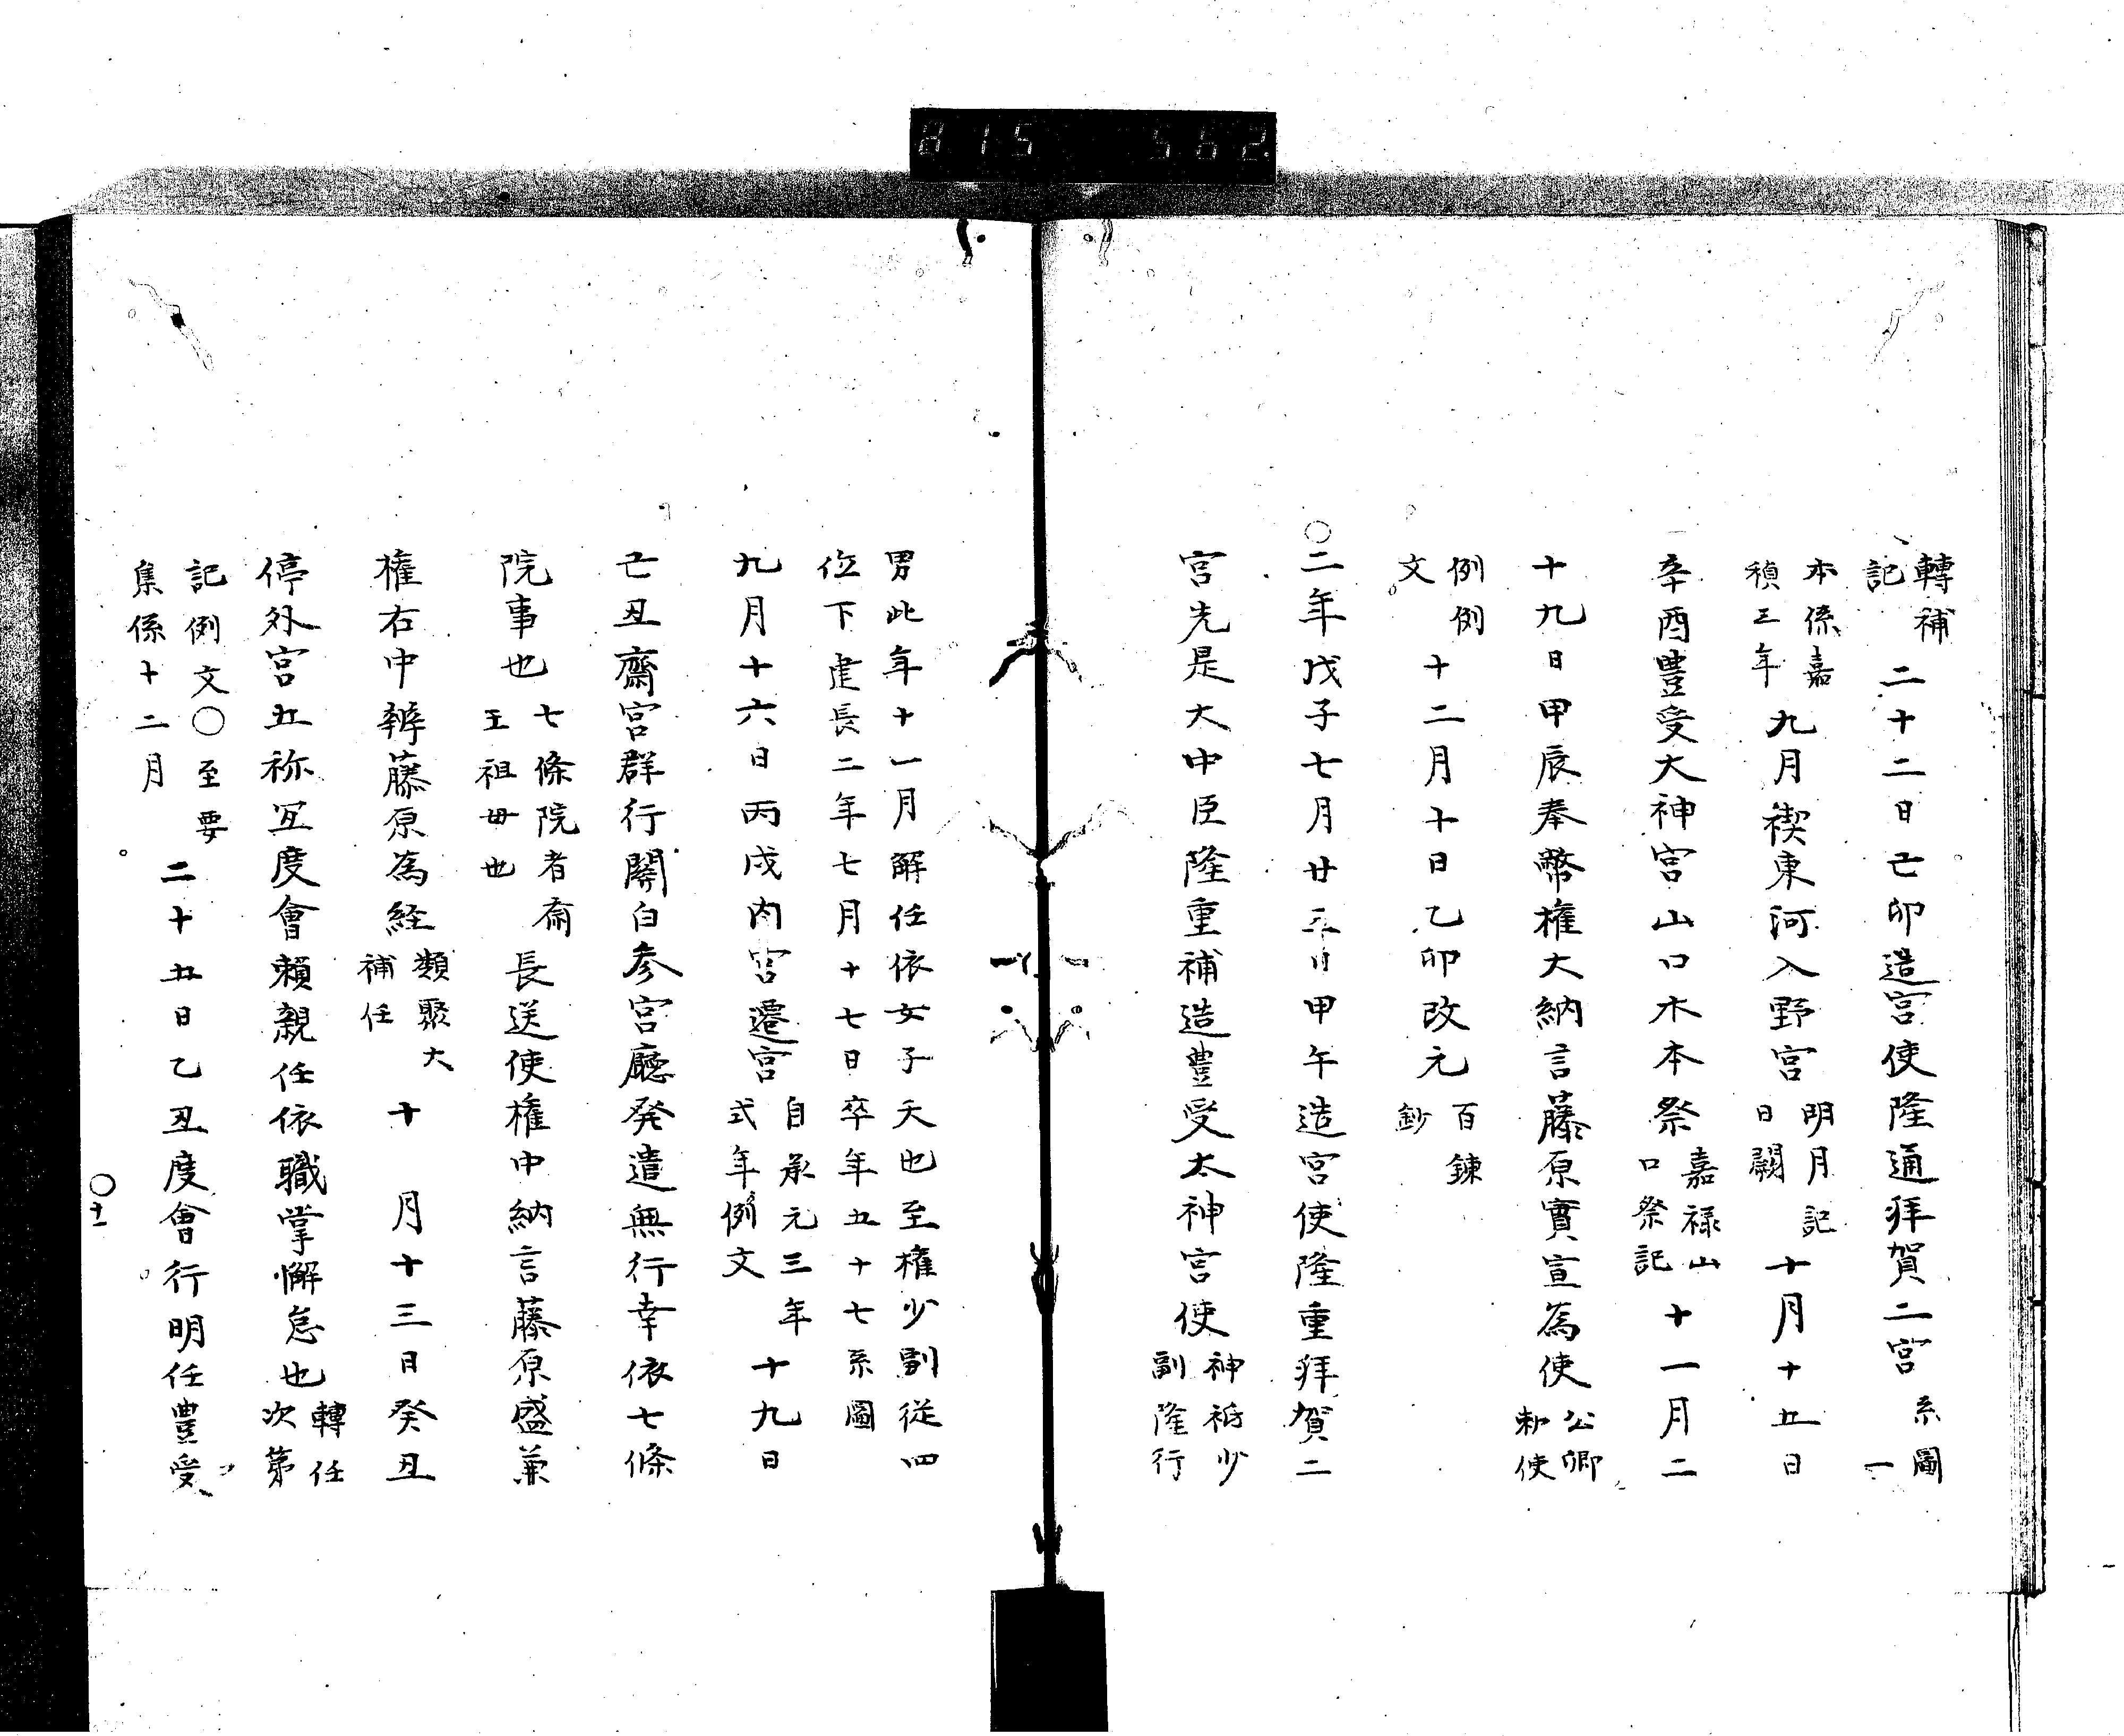 815 562
轉補
記
二十二日己卯造宮使隆通拜賀二宮
系圖
一
本係嘉
禎三年
九月禊東河入野宮
明月記
日闕
十月十五日
辛酉豊受大神宮山口木本祭
嘉禄山
口祭記
十一月二
十九日甲辰奉幣權大納言藤原實宣為使
公卿
勅使
例例
文
十二月十日乙卯改元
百錬
鈔
○二年戊子七月廿五日甲午造宮使隆重拜賀二
宮先是大中臣隆重補造豊受太神宮使
神祇少
副隆行
男此年十一月解任依女子夭也至權少副從四
位下建長二年七月十七日卒年五十七系圖
九月十六日丙戌内宮遷宮
自承元三年
式年例文
十九日
己丑齋宮群行關白参宮廳発遣無行幸依七條
院事也
七條院者齋
王祖母也
長送使權中納言藤原盛兼
權右中辨藤原為経
類聚大
補任
十月十三日癸丑
停外宮五祢冝度會頼親任依職掌懈怠也
轉任
次第
記例文○至要
集係十二月
二十五日乙丑度會行明任豊受
○十一